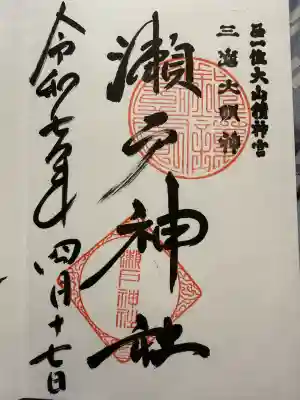 正一位大山積神宮
三島大明神
瀬戸神社
瀬戸神社
令和七年
四月十七日